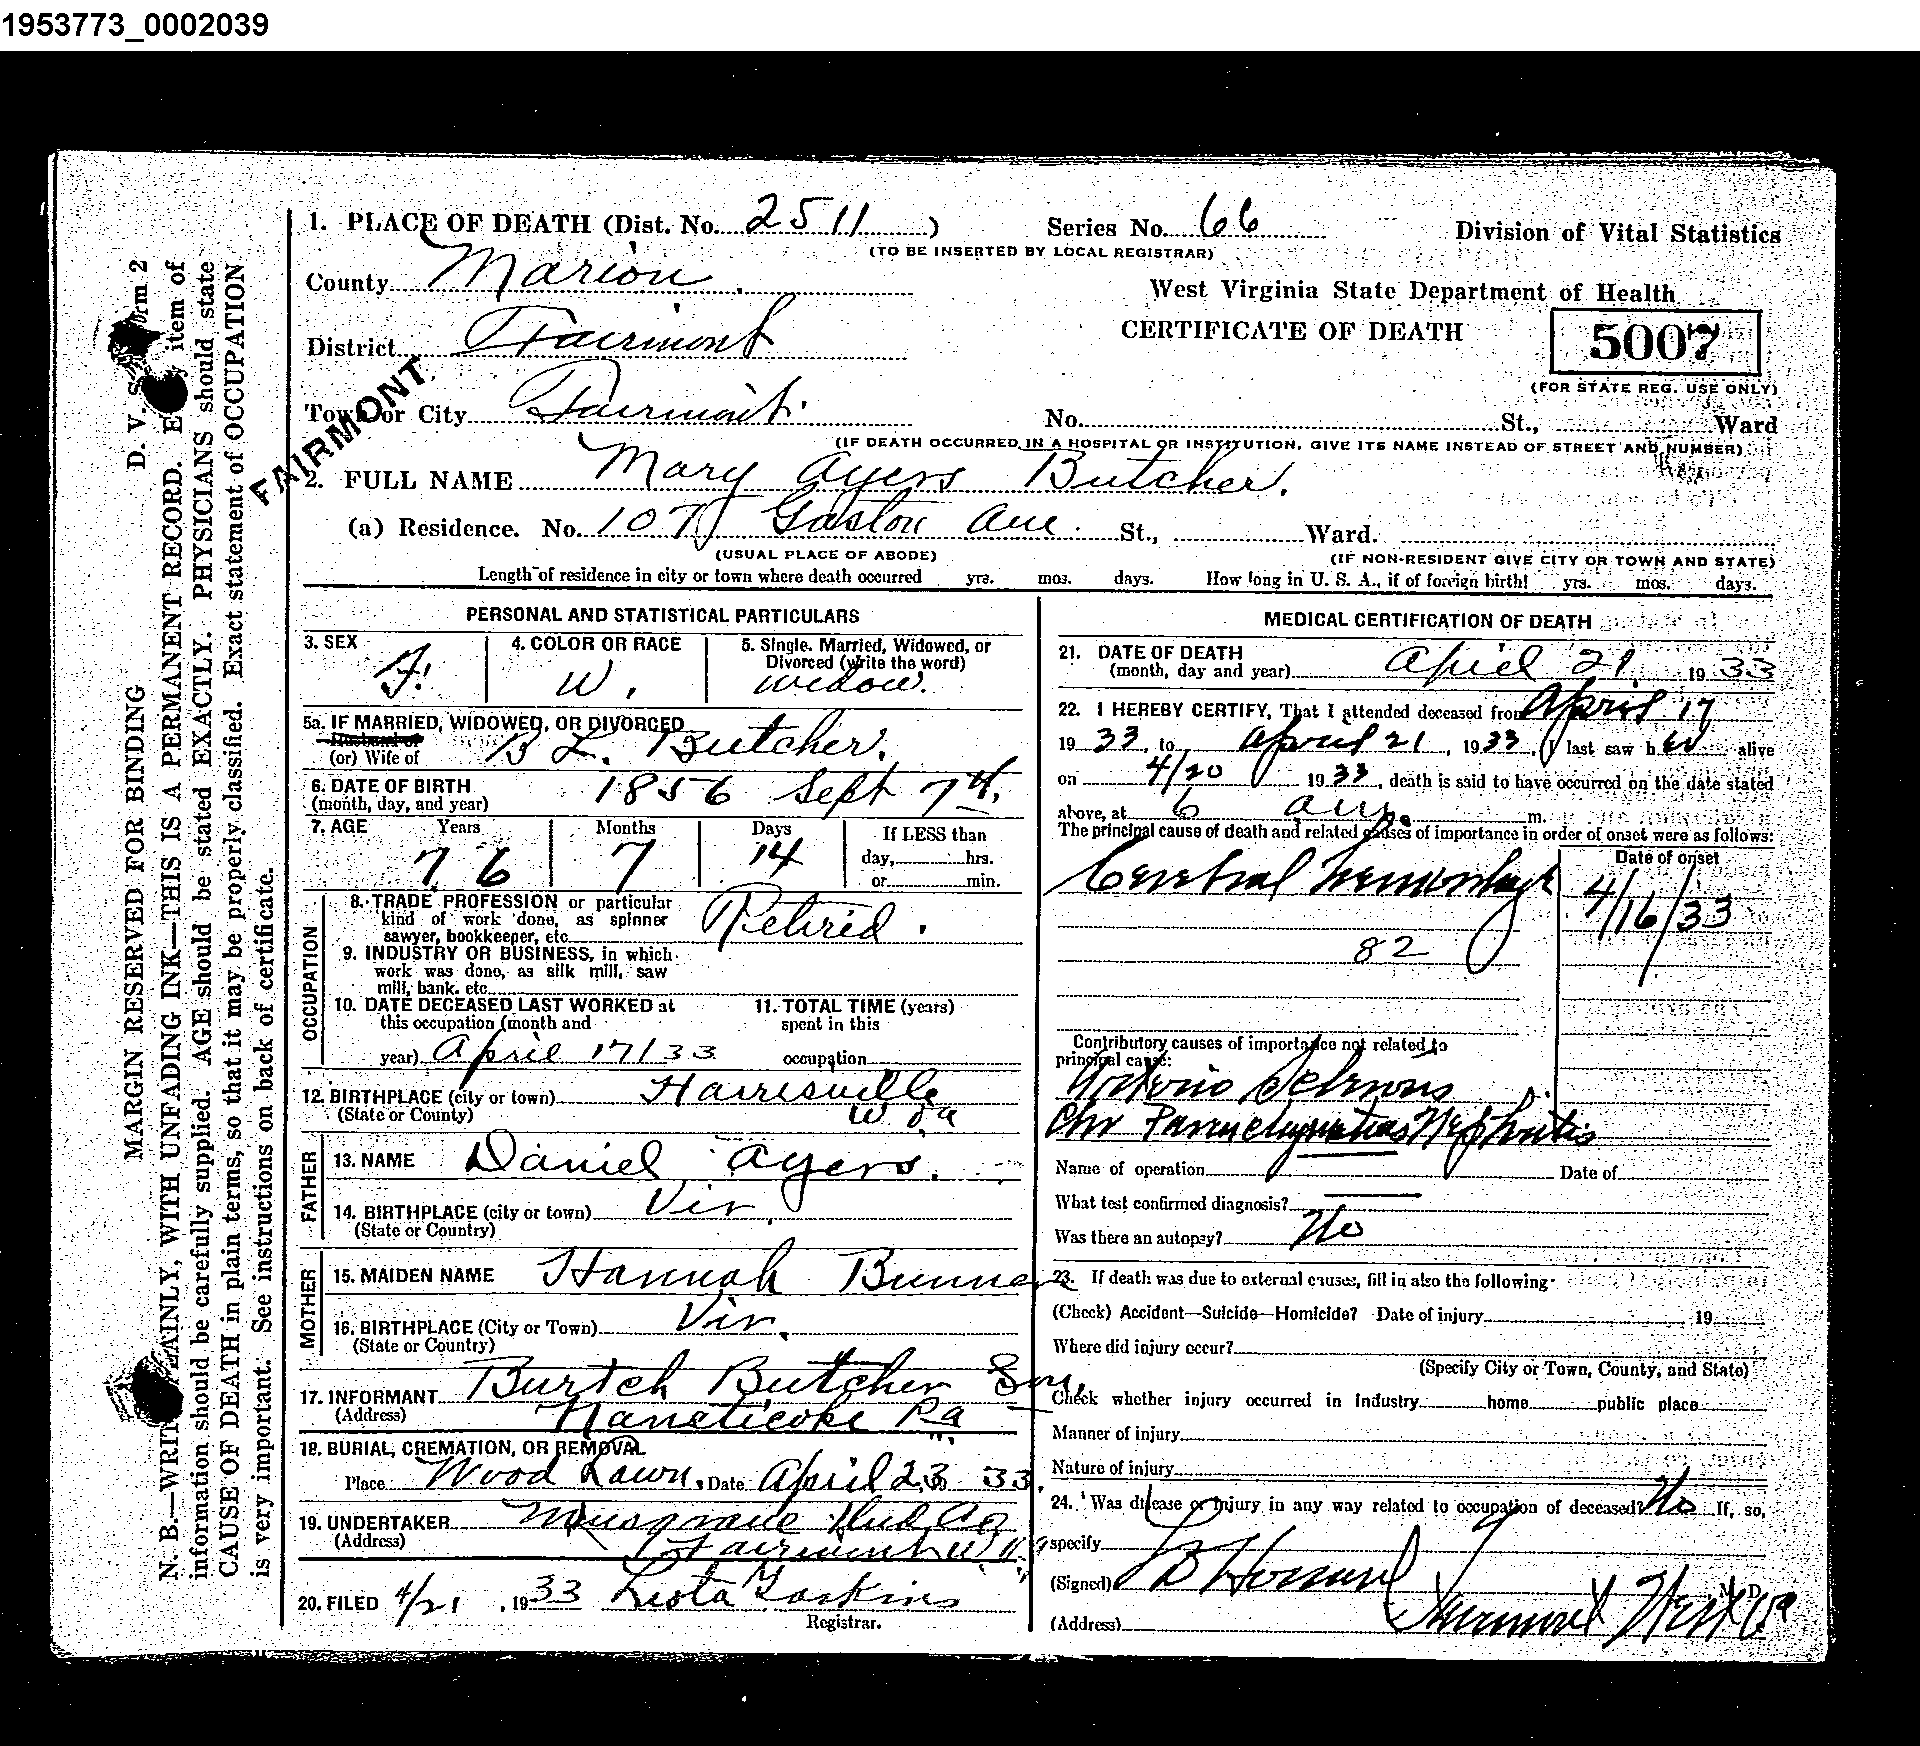 1953773_0002039
1. PLACE OF DEATH (Dist. No. 2511 ) Series No. 66 Division of Vital Statistics
(TO BE INSERTED BY LOCAL REGISTRAR)
County Marion West Virginia State Department of Health
CERTIFICATE OF DEATH 5007
District Fairmont
(FOR STATE REG. USE ONLY)
FAIRMONT
Town or City Fairmont. No. St., Ward
(IF DEATH OCCURRED IN A HOSPITAL OR INSTITUTION, GIVE ITS NAME INSTEAD OF STREET AND NUMBER)
2. FULL NAME Mary Ayers Butcher.
(a) Residence. No. 107 Gaston Ave. St., Ward.
(USUAL PLACE OF ABODE) (IF NON-RESIDENT GIVE CITY OR TOWN AND STATE)
Length of residence in city or town where death occurred yrs. mos. days. How long in U. S. A., if of foreign birth? yrs. mos. days.
PERSONAL AND STATISTICAL PARTICULARS
3. SEX 4. COLOR OR RACE 5. Single. Married, Widowed, or
Divorced (write the word)
F. W. widow.
5a. IF MARRIED, WIDOWED, OR DIVORCED
Husband of
(or) Wife of B L. Butcher.
6. DATE OF BIRTH
(month, day, and year) 1856 Sept 7th.
7. AGE Years Months Days If LESS than
76 7 14 day, hrs.
or min.
OCCUPATION
8. TRADE PROFESSION or particular
kind of work done, as spinner
sawyer, bookkeeper, etc. Retired.
9. INDUSTRY OR BUSINESS, in which
work was done, as silk mill, saw
mill, bank. etc.
10. DATE DECEASED LAST WORKED at 11. TOTAL TIME (years)
this occupation (month and spent in this
year) April 17/33 occupation
12. BIRTHPLACE (city or town) Harrisville
(State or County) W Va
FATHER
13. NAME Daniel Ayers.
14. BIRTHPLACE (city or town) Vir.
(State or Country)
MOTHER
15. MAIDEN NAME Hannah
16. BIRTHPLACE (City or Town) Vir.
(State or Country)
17. INFORMANT Burtch Butcher Son,
(Address) Naneticoke Pa
18. BURIAL, CREMATION, OR REMOVAL
Place Wood Lawn, Date April 23 33.
19. UNDERTAKER Musgrave
(Address) Fairmont W Va
20. FILED 4/21, 1933 Leota Gaskins
Registrar.
MEDICAL CERTIFICATION OF DEATH
21. DATE OF DEATH
(month, day and year) April 21 1933
22. I HEREBY CERTIFY, That I attended deceased from April 17
1933, to April 21, 1933, I last saw her alive
on 4/20 1933, death is said to have occurred on the date stated
above, at 6 am. m.
The principal cause of death and related causes of importance in order of onset were as follows:
Date of onset
Cerebral hemorrhage 4/16/33
82
Contributory causes of importance not related to
principal cause:
Arterio Sclerosis
Chr Parenchymatous Nephritis
Name of operation Date of
What test confirmed diagnosis?
Was there an autopsy? No
23. If death was due to external causes, fill in also the following:
(Check) Accident—Suicide—Homicide? Date of injury 19
Where did injury occur?
(Specify City or Town, County, and State)
Check whether injury occurred in industry home public place
Manner of injury
Nature of injury
24. Was disease or injury in any way related to occupation of deceased? No If, so,
specify
(Signed) M. D.
(Address) Fairmont West Va
MARGIN RESERVED FOR BINDING
N. B.—WRITE PLAINLY, WITH UNFADING INK—THIS IS A PERMANENT RECORD. item of
information should be carefully supplied. AGE should be stated EXACTLY. PHYSICIANS should state
CAUSE OF DEATH in plain terms, so that it may be properly classified. Exact statement of OCCUPATION
is very important. See instructions on back of certificate.
D. V. S. Form 2